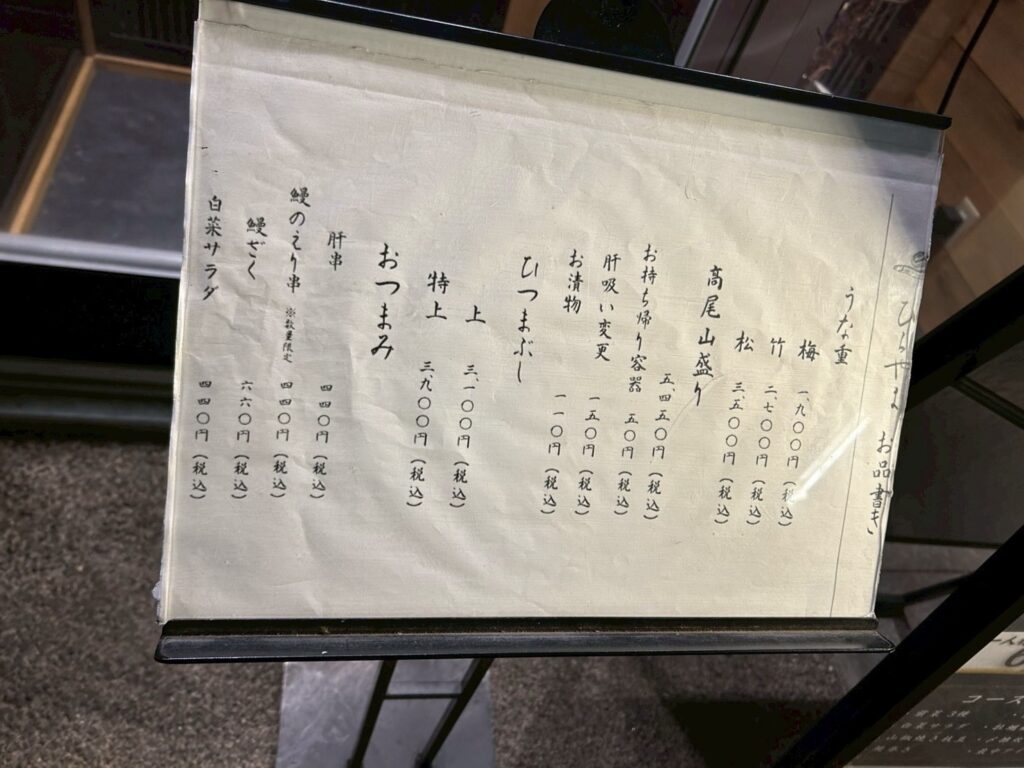 ひらやま お品書き
うな重
梅 一、九〇〇円(税込)
竹 二、七〇〇円(税込)
松 三、五〇〇円(税込)
高尾山盛り 五、四五〇円(税込)
お持ち帰り容器 五〇円(税込)
肝吸い変更 一五〇円(税込)
お漬物 一一〇円(税込)
ひつまぶし
上 三、一〇〇円(税込)
特上 三、九〇〇円(税込)
おつまみ
肝串 四四〇円(税込)
鰻のえり串 ※数量限定 四四〇円(税込)
鰻ざく 六六〇円(税込)
白菜サラダ 四四〇円(税込)
コース